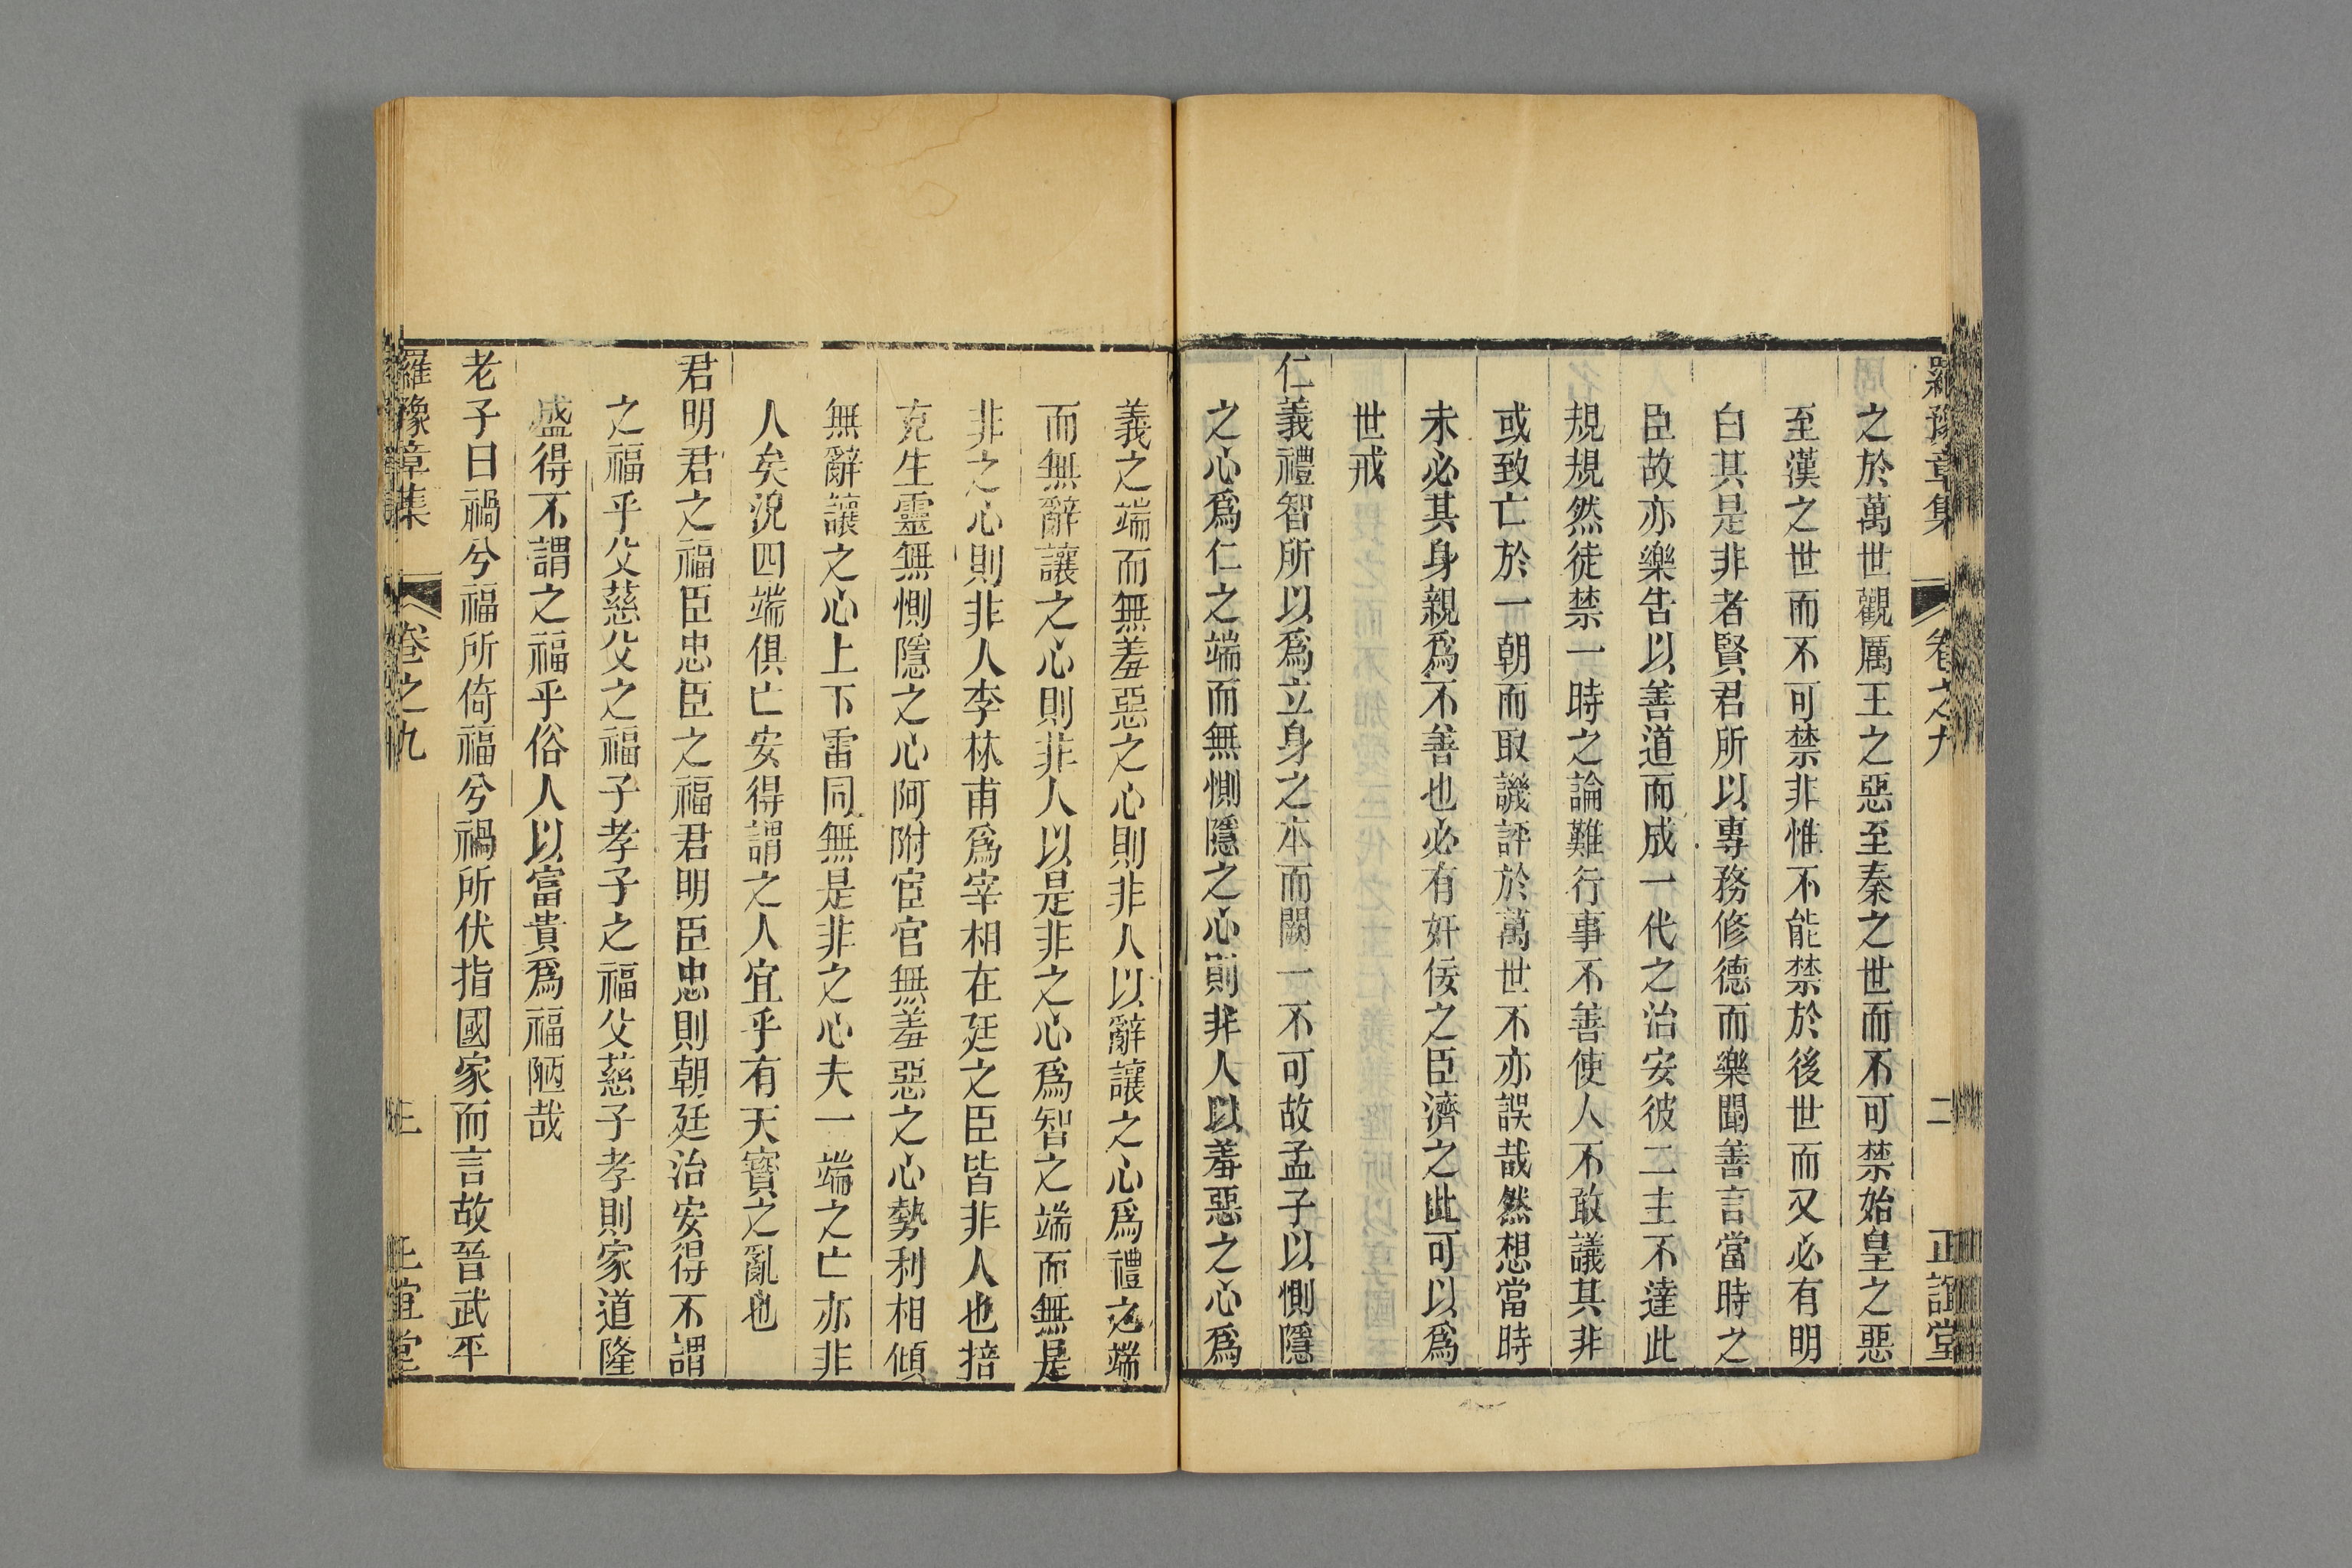 羅豫章集 卷之九 二 正誼堂
之於萬世觀厲王之惡至秦之世而不可禁始皇之惡
至漢之世而不可禁非惟不能禁於後世而又必有明
白其是非者賢君所以專務修德而樂聞善言當時之
臣故亦樂告以善道而成一代之治安彼二主不達此
規規然徒禁一時之論難行事不善使人不敢議其非
或致亡於一朝而取譏評於萬世不亦誤哉然想當時
未必其身親爲不善也必有奸佞之臣濟之此可以爲
世戒
仁義禮智所以爲立身之本而闕一不可故孟子以惻隱
之心爲仁之端而無惻隱之心則非人以羞惡之心爲
義之端而無羞惡之心則非人以辭讓之心爲禮之端
而無辭讓之心則非人以是非之心爲智之端而無是
非之心則非人李林甫爲宰相在廷之臣皆非人也掊
克生靈無惻隱之心阿附宦官無羞惡之心勢利相傾
無辭讓之心上下雷同無是非之心夫一端之亡亦非
人矣況四端俱亡安得謂之人宜乎有天寶之亂也
君明君之福臣忠臣之福君明臣忠則朝廷治安得不謂
之福乎父慈父之福子孝子之福父慈子孝則家道隆
盛得不謂之福乎俗人以富貴爲福陋哉
老子曰禍兮福所倚福兮禍所伏指國家而言故晉武平
羅豫章集 卷之九 三 正誼堂